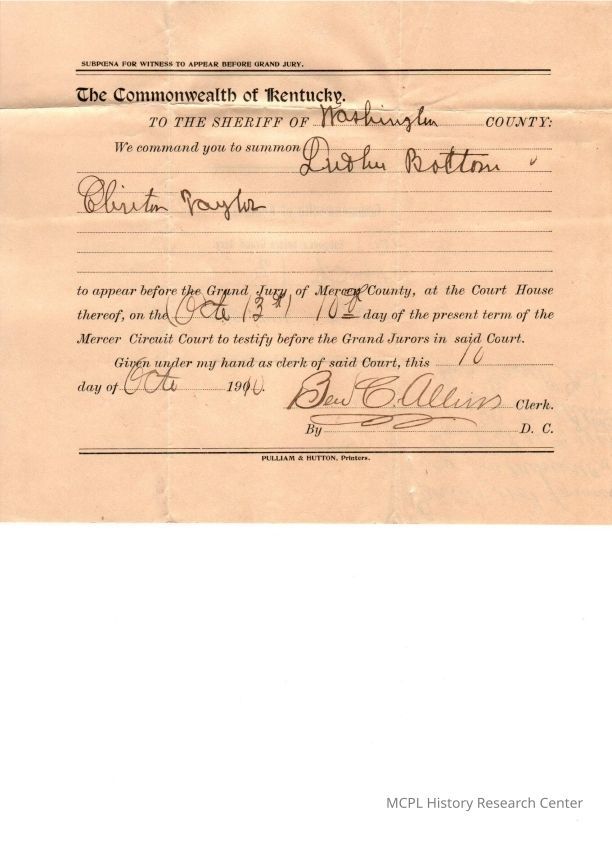 SUBPŒNA FOR WITNESS TO APPEAR BEFORE GRAND JURY.
The Commonwealth of Kentucky.
TO THE SHERIFF OF Washington COUNTY:
We command you to summon Luther Bottom
Clinton Taylor
to appear before the Grand Jury of Mercer County, at the Court House
thereof, on the (Octo 13th) 10th day of the present term of the
Mercer Circuit Court to testify before the Grand Jurors in said Court.
Given under my hand as clerk of said Court, this 10
day of Octo 1900. Ben C. Allin Clerk.
By D. C.
PULLIAM & HUTTON, Printers.
MCPL History Research Center